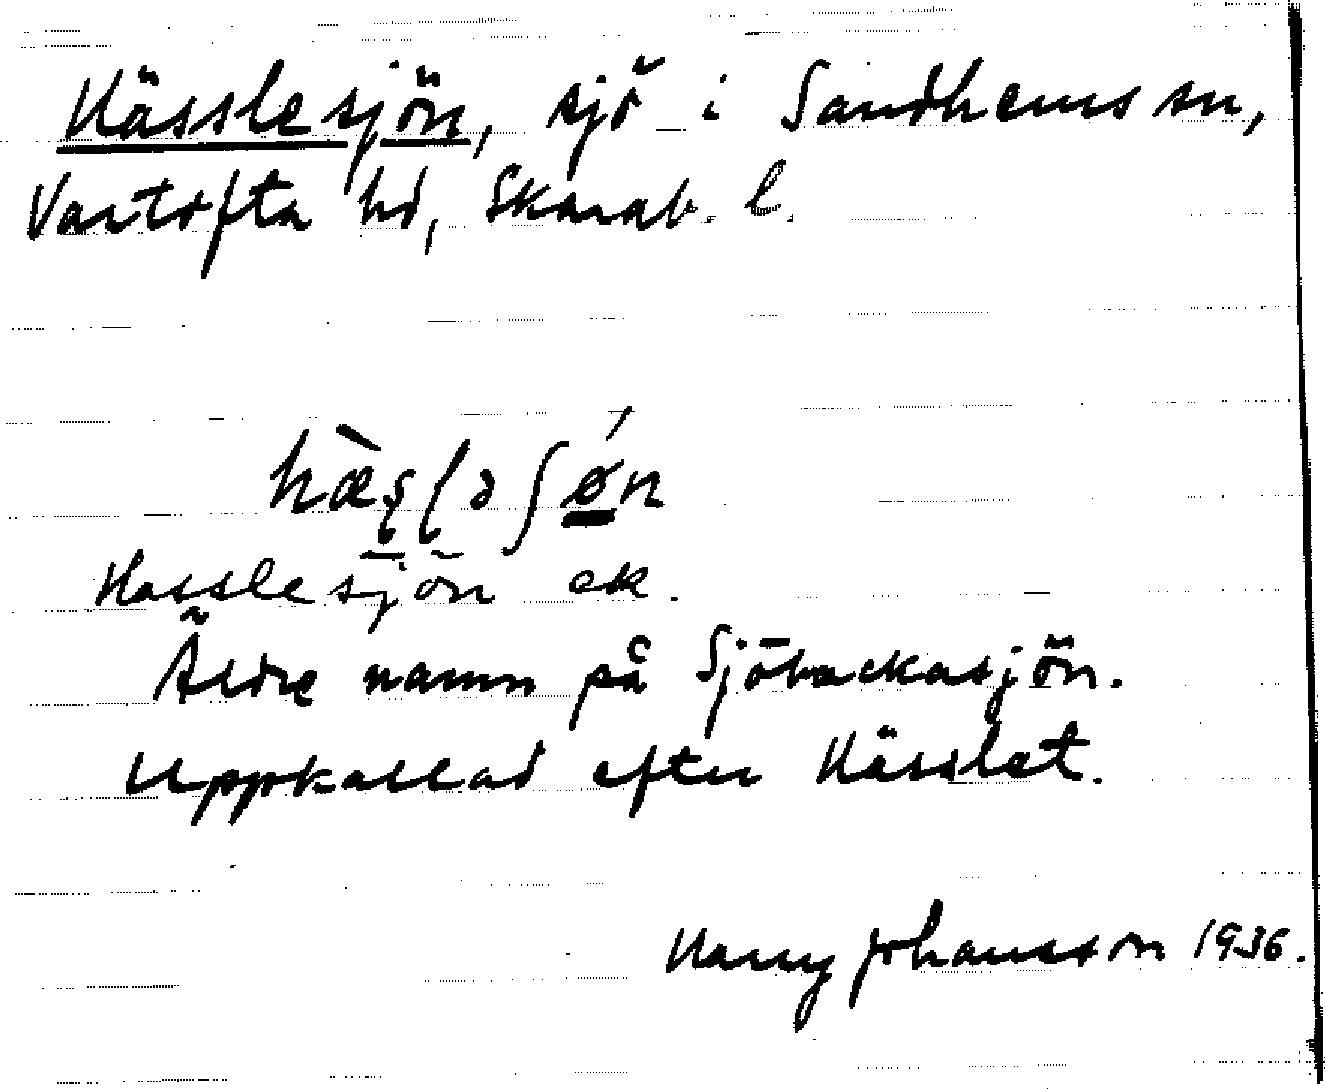 Hässlesjön, sjö i Sandhems sn,
Vartofta hd, Skarab. l.
hæ̀slaʃǿn
Hasslesjön ek.
Äldre namn på Sjöbackasjön.
Uppkallad efter Hässlet.
Harry Johansson 1936.